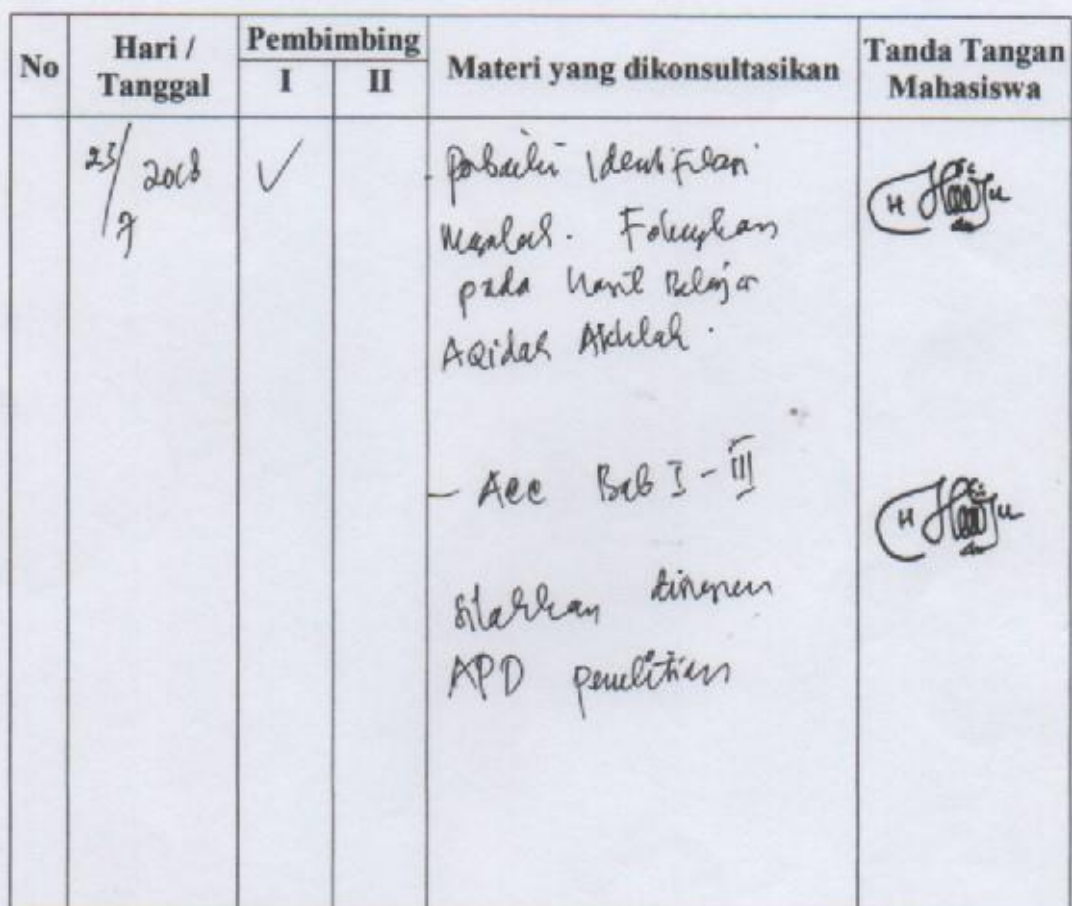 No
Hari / Tanggal
Pembimbing
I
II
Materi yang dikonsultasikan
Tanda Tangan Mahasiswa
23/7 2018
✓
- Perbaiki Identifikasi
Masalah. Fokuskan
pada Hasil Belajar
Aqidah Akhlak.
- Acc Bab I - III
silahkan disusun
APD penelitian